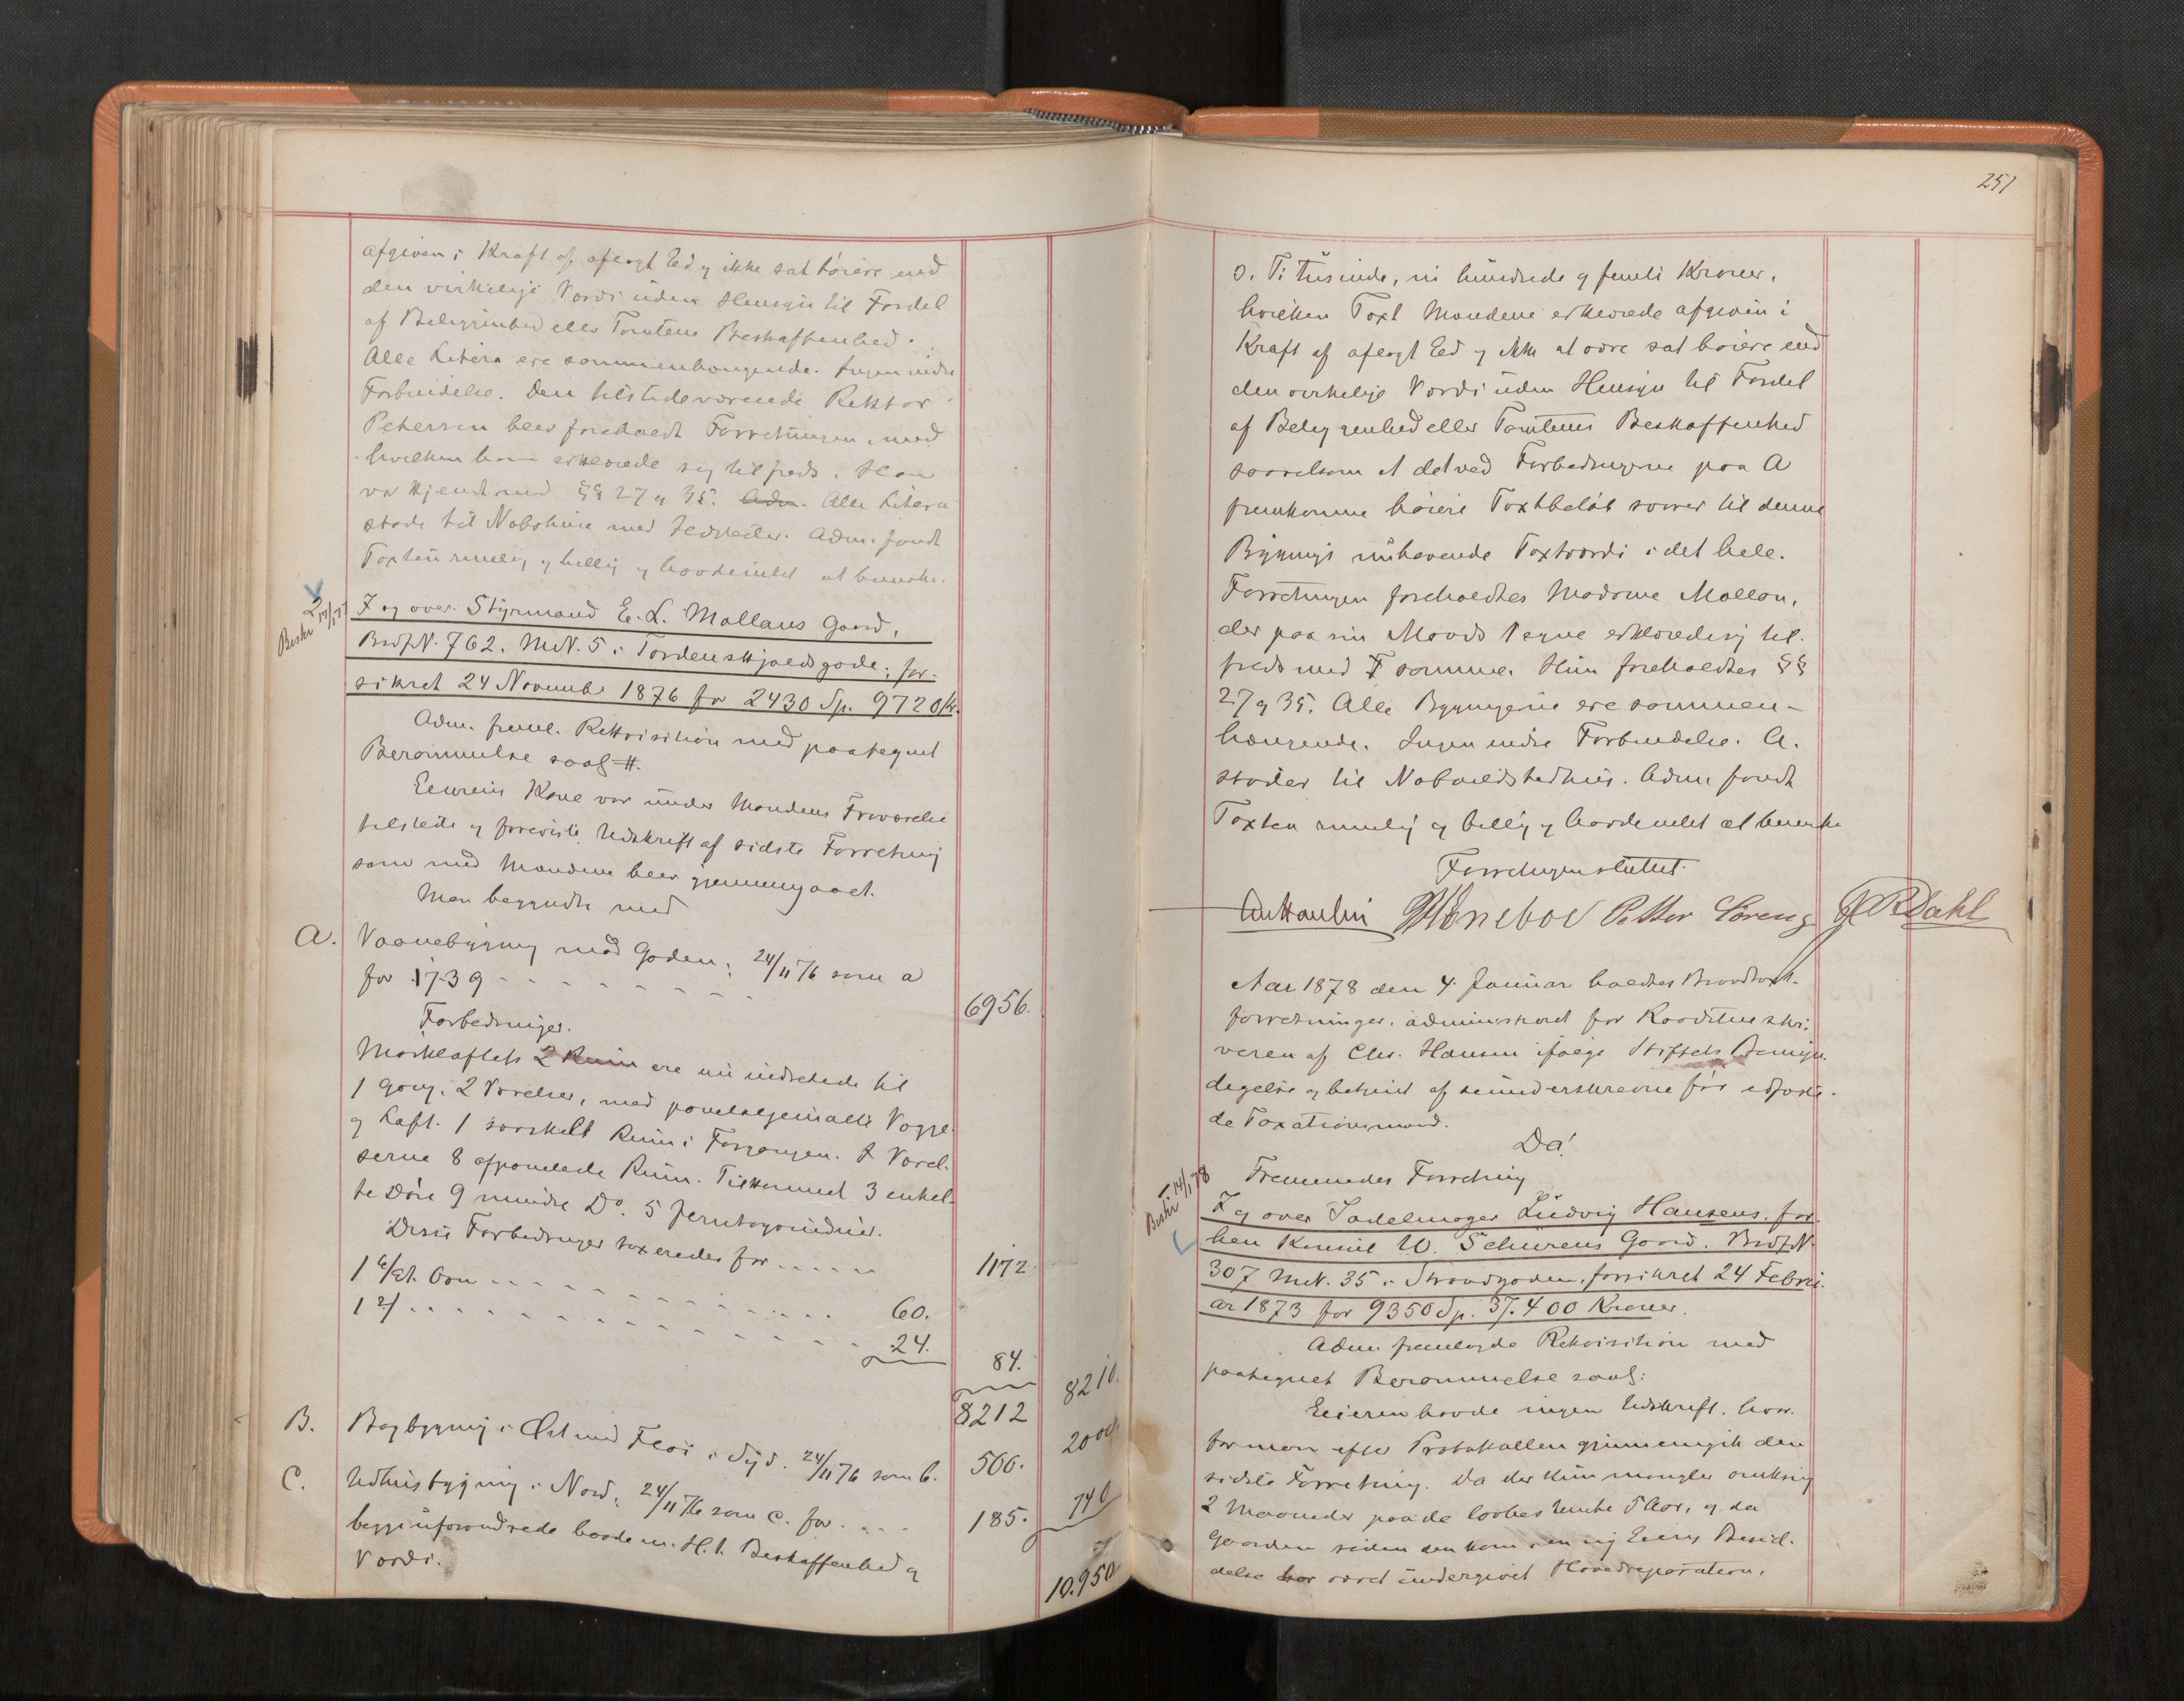 afgiven i Kraft af aflagt Ed og ikke sat höiere end
den virkelige Værdi uden Hensyn til Fordel
af Beliggenhed eller Tomtens Beskaffenhed.
Alle Litera ere sammenhængende. Ingen indre
Forbindelse. Den tilstedeværende Rektor
Petersen blev foreholdt Forretningen med
hvilken han erklærede sig tilfreds. Han
var kjendt med §§ 27 og 35. Adm. Alle Litera
støde til Nabohuse med Ildsteder. Adm. fandt
Taxten rimelig og billig og havde intet at bemærke.
2
Beskr
I og over Styrmand E. L. Mollans Gaard,
BrdfN. 762. MN. 5 i Tordenskjoldsgade; for-
sikret 24 November 1876 for 2430 Sp. 9720 Kr.
Adm. freml. Rekvisition med paategnet
Berammelse saal. #.
Eierens Kone var under Mandens Fraværelse
tilstede og foreviste Udskrift af sidste Forretning
som med Mændene blev gjennemgaaet.
Man begyndte med
A. Vaanebygning mod Gaden; 24/11 76 som a
for 1739 - - - - - - - - - 6956.
Forbedringer.
Mørkloftets 2 Rum ere nu indrettede til
1 Gang, 2 Værelser, med panelte gemalte Vægge
og Loft. 1 særskilt Rum i Forgangen. I Værel-
serne 8 afpanelede Rum. Tilkommet 3 enkel-
te Döre 9 mindre Do. 5 Jerntagvinduer.
Disse Forbedringer taxeredes for - - - - - 1172
1 Et. Ovn - - - - - - - - - - - 60.
1 2/ - - - - - - - - - - - - - 24.
84.
8212 8210.
B. Bagbygning i Öst med Flöi i Syd. 24/11 76 som b. 500. 2000
C. Udhusbygning i Nord; 24/11 76 som c. for - - - 185. 740
begge uforandrede baade m. H. t. Beskaffenhed og
Værdi.
10.950
251
s. Ti Tusinde, ni hundrede og femti Kroner,
hvilken Taxt Mændene erklærede afgiven i
Kraft af aflagt Ed og ikke at være sat höiere end
den virkelige Værdi uden Hensyn til Fordel
af Beliggenhed eller Tomtens Beskaffenhed
saavelsom at det ved Forbedringerne paa A
fremkomne höiere Taxtbelöb svarer til denne
Bygnings nuhavende Taxtværdi i det hele.
Forretningen foreholdtes Madame Mollan,
der paa sin Mands Vegne erklærede sig til-
freds med samme. Hun foreholdtes §§
27 og 35. Alle Bygningerne ere sammen-
hængende. Ingen indre Forbindelse. A.
støder til Naboildstedhus. Adm. fandt
Taxten rimelig og billig og havde intet at bemærke
Forretningen sluttet.
Petter Soreng Dahl
Aar 1878 den 4. Januar holdtes Brandtaxt-
forretninger, administreret for Raadstueskri-
veren af Chr. Hansen ifølge Stiftets Bemyn-
digelse og betjent af de underskrevne før edfæste-
de Taxationsmænd.
Da!
Fremmedes Forretning
Beskr 14/1 78
I og over Sadelmager Ludvig Hansens, for-
hen Konsul W. Schürens Gaard. BrdfN.
307 MN. 35 i Strandgaden, forsikret 24 Febru-
ar 1873 for 9350 Sp. 37.400 Kroner.
Adm. fremlagde Rekvisition med
paategnet Berammelse saal:
Eieren havde ingen Udskrift, hvor-
for man efter Protokollen gjennemgik den
sidste Forretning. Da der kun mangler omkring
2 Maaneder paa de lovbestemte 5 Aar, og da
Gaarden siden den kom i en ny Eiers Besid-
delse har været undergivet Hovedreparation,